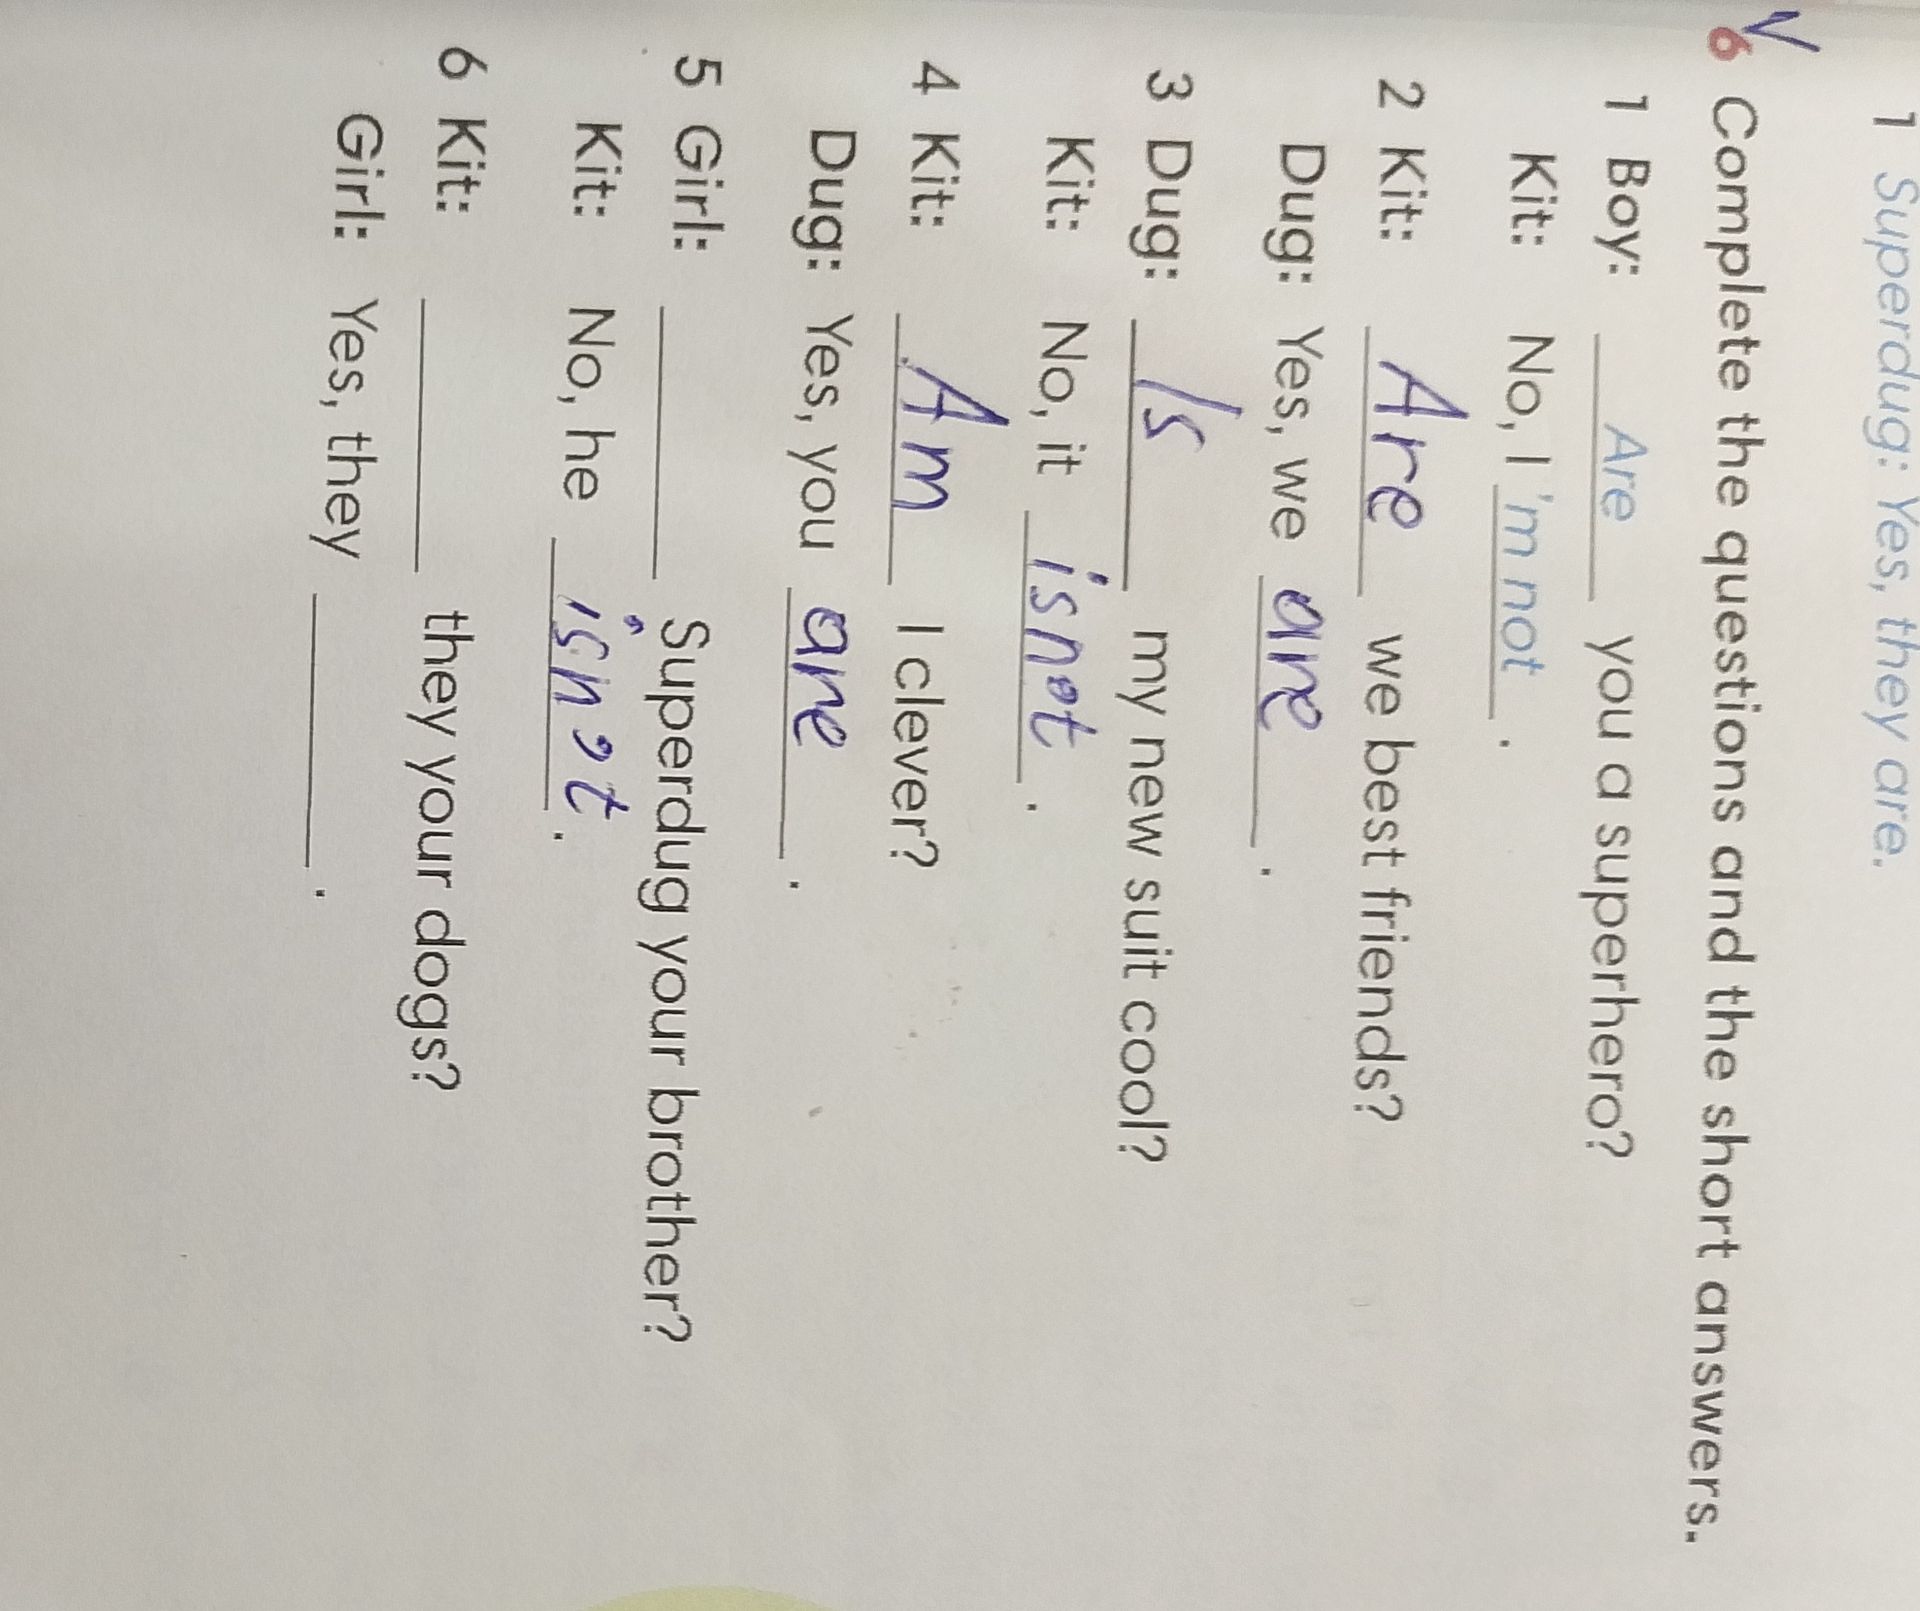 1 Superdug: Yes, they are.
6 Complete the questions and the short answers.
1 Boy: Are you a superhero?
Kit: No, I 'm not.
2 Kit: Are we best friends?
Dug: Yes, we are.
3 Dug: Is my new suit cool?
Kit: No, it is not.
4 Kit: Am I clever?
Dug: Yes, you are.
5 Girl: ______ Superdug your brother?
Kit: No, he is not.
6 Kit: ______ they your dogs?
Girl: Yes, they ______.